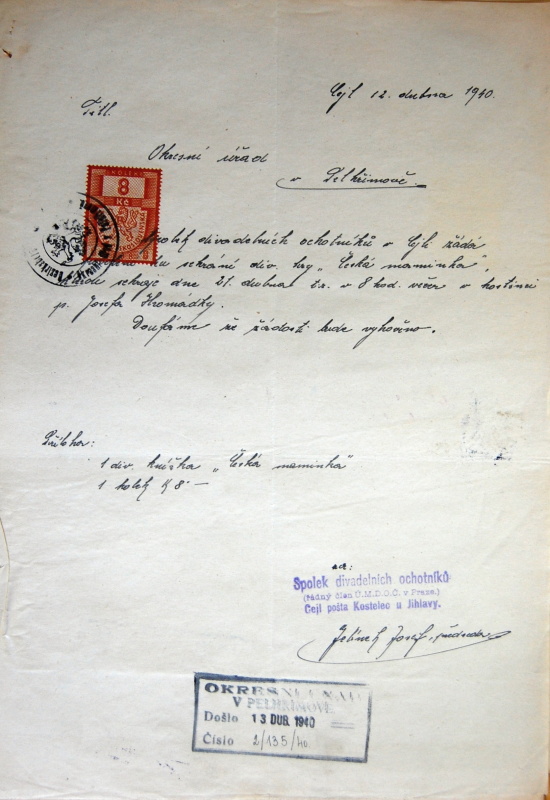 Cejl 12. dubna 1940.
Titl.
Okresní úřad
v Pelhřimově.
KOLEK
8
Kč
Spolek divadelních ochotníků v Cejli žádá
sehrání div. hry „Česká maminka",
sehraje dne 21. dubna t.r. v 8 hod. večer v hostinci
p. Josefa Hromádky.
Doufáme že žádosti bude vyhověno.
Příloha:
1 div. knížka „Česká maminka"
1 kolek K 8·—
za:
Spolek divadelních ochotníků
(řádný člen Ú.M.D.O.Č. v Praze.)
Cejl pošta Kostelec u Jihlavy.
Jelínek Josef, předseda
OKRESNÍ ÚŘAD
V PELHŘIMOVĚ
Došlo 13 DUB. 1940
Číslo 2/135/40.